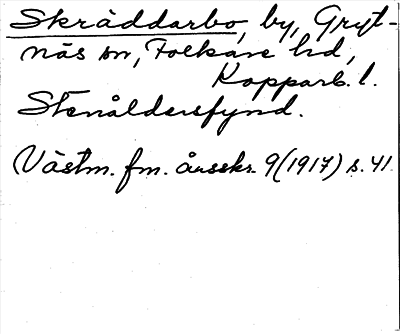 Skräddarbo, by, Gryt-
näs sn, Folkare hd,
Kopparb. l.
Stenåldersfynd.
Västm. fm. årsskr. 9(1917) s. 41.